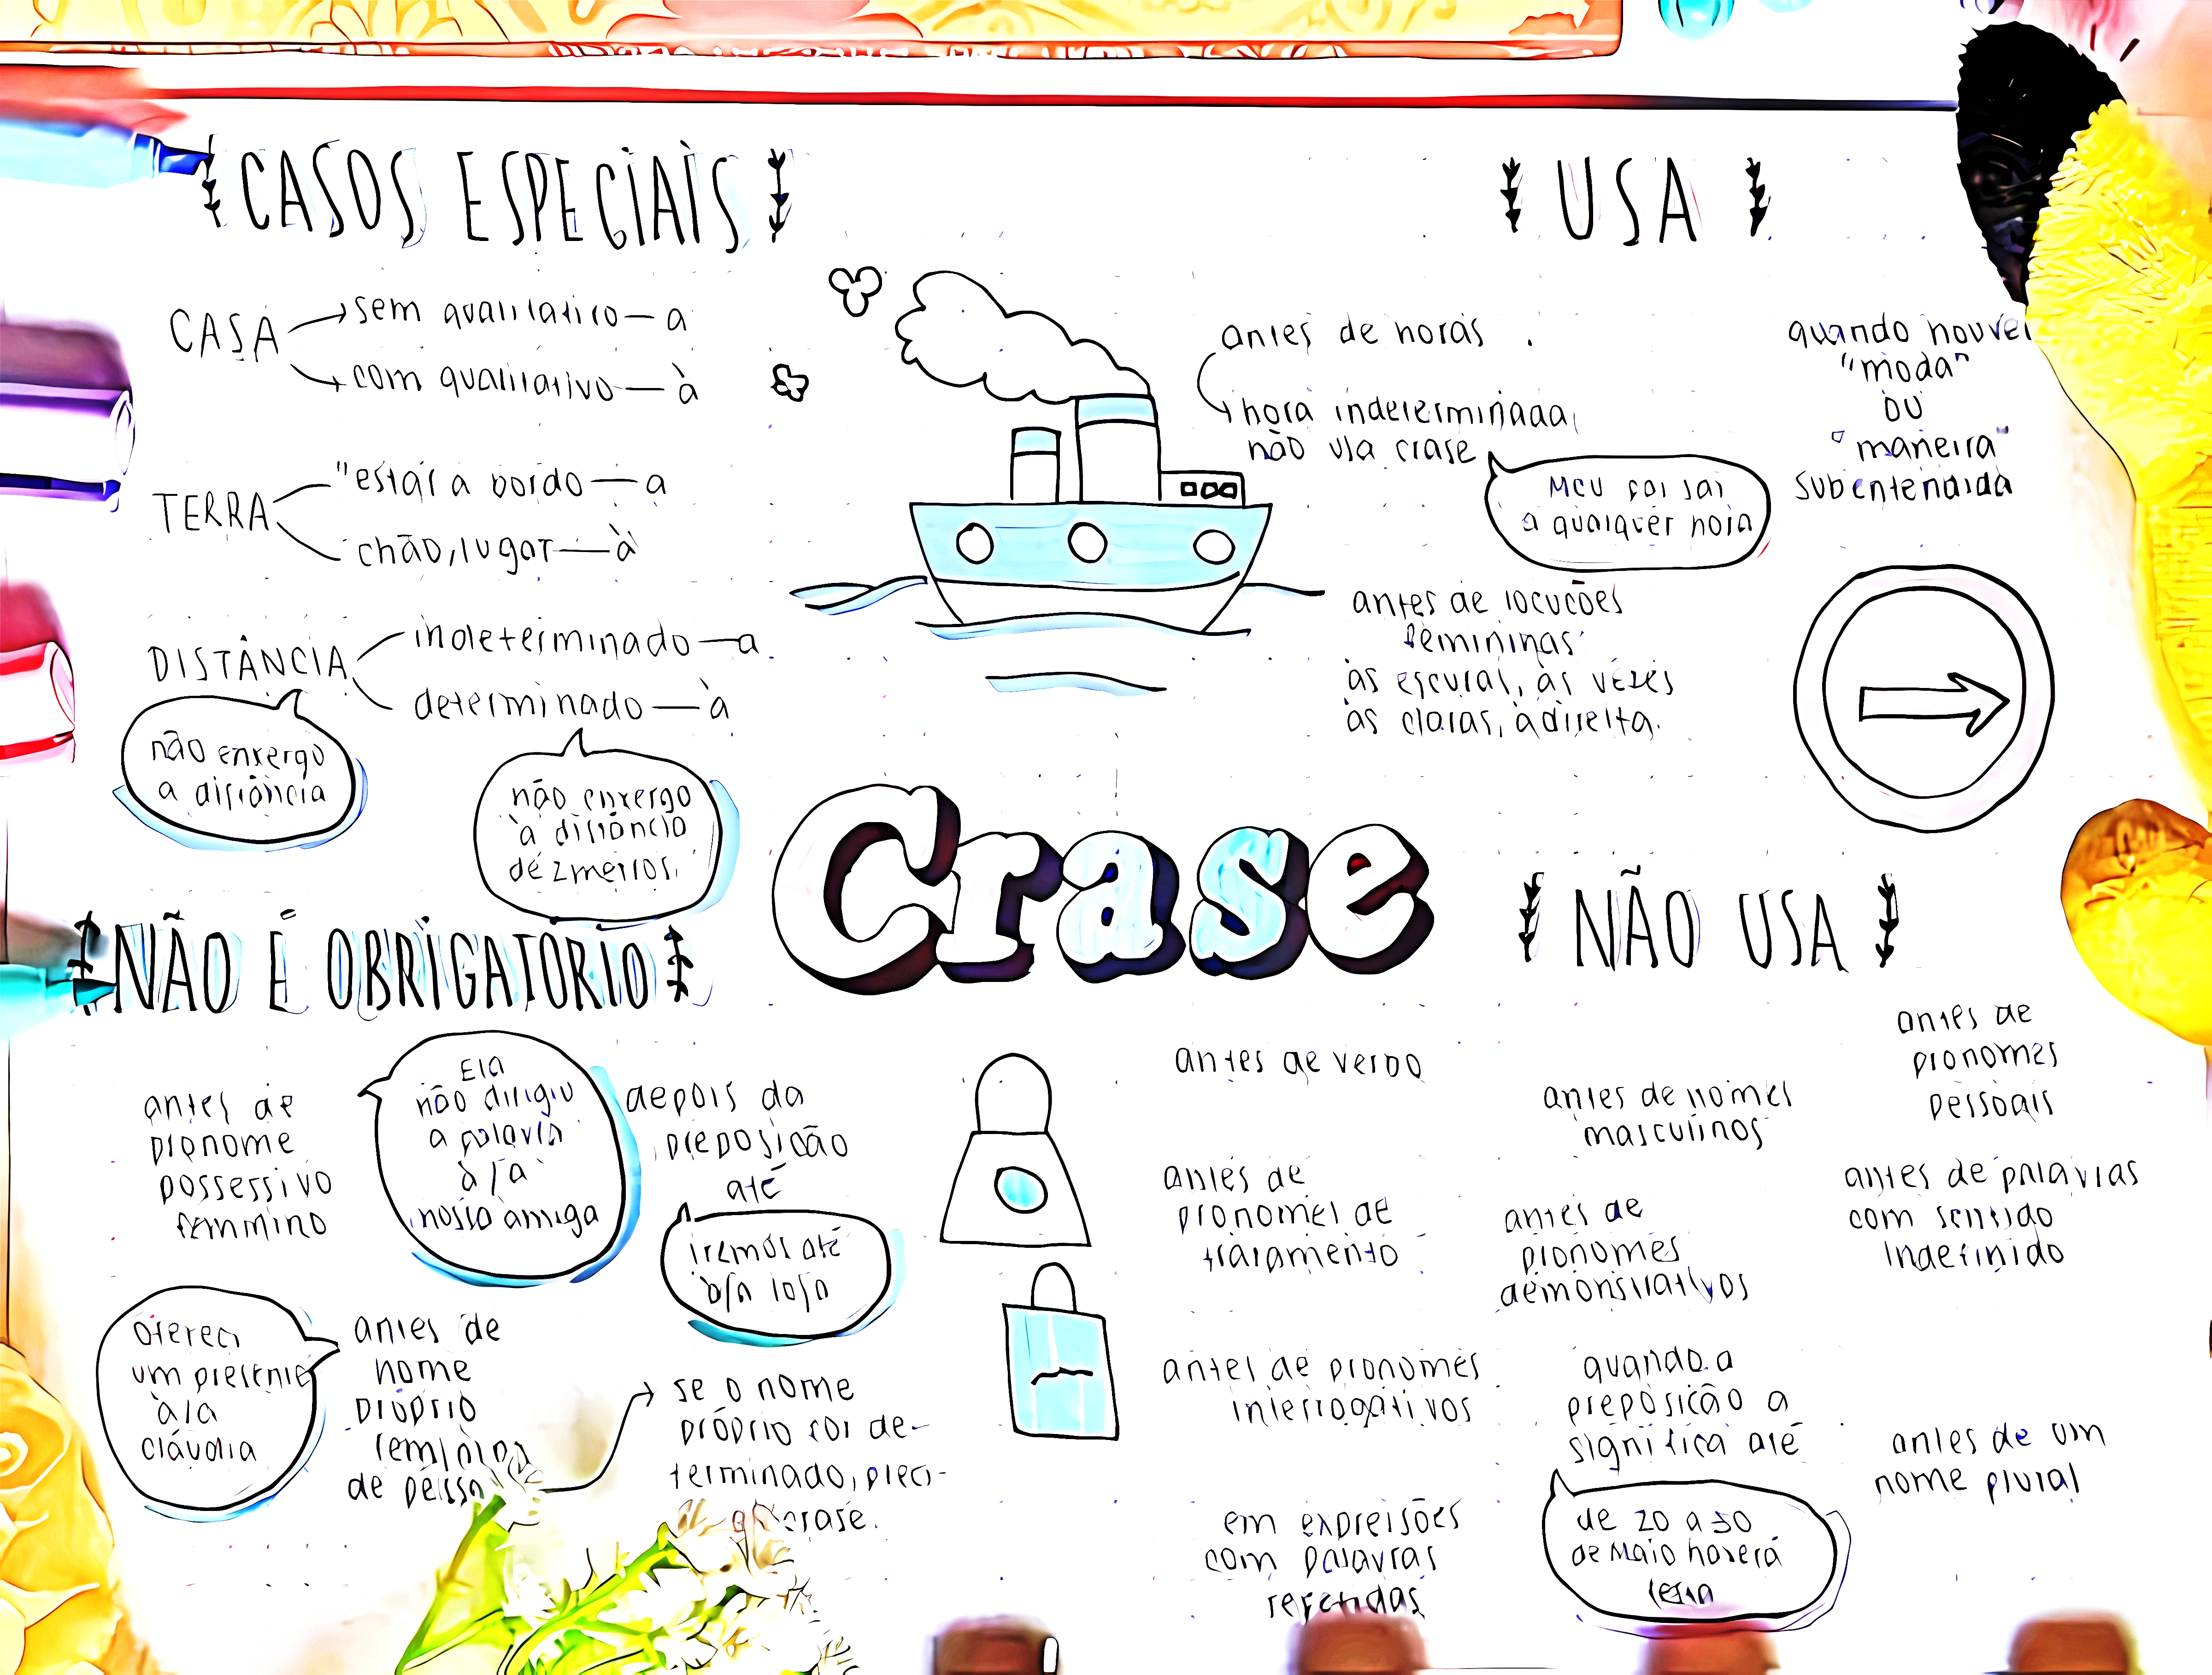 CASOS ESPECIAIS
CASA
sem qualitativo — a
com qualitativo — à
TERRA
"estar a bordo — a
chão, lugar — à
DISTÂNCIA
indeterminado — a
determinado — à
não enxergo
a distância
não enxergo
à distância
de 2 metros.
USA
antes de horas
hora indeterminada
não usa crase
Meu pai sai
a qualquer hora
quando houver
"moda"
OU
"maneira"
subentendida
antes de locuções
femininas
às escuras, às vezes
às claras, à direita.
Crase
NÃO É OBRIGATÓRIO
antes de
pronome
possessivo
feminino
Ela
não dirigiu
a palavra
à/a
nossa amiga
depois da
preposição
até
iremos até
à/a loja
Ofereci
um presente
à/a
Cláudia
antes de
nome
próprio
de pessoa
se o nome
próprio for de-
terminado, preci-
crase.
NÃO USA
antes de verbo
antes de nomes
masculinos
antes de
pronomes
pessoais
antes de
pronomes de
tratamento
antes de
pronomes
demonstrativos
antes de palavras
com sentido
indefinido
antes de pronomes
interrogativos
quando a
preposição a
significa até
de 20 a 30
de Maio haverá
festa
antes de um
nome plural
em expressões
com palavras
repetidas